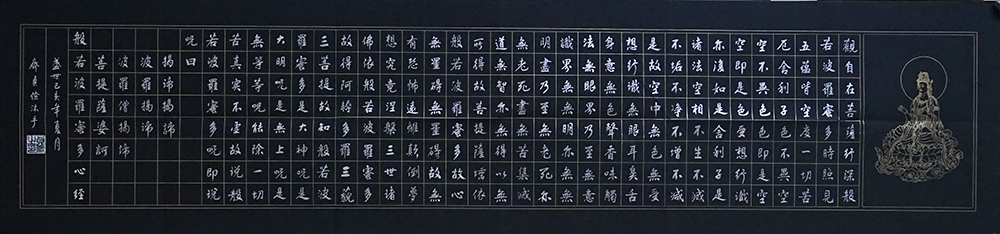 觀自在菩薩行深般
若波羅蜜多時照見
五蘊皆空度一切苦
厄舍利子色不異空
空不異色色即是空
空即是色受想行識
亦復如是舍利子是
諸法空相不生不滅
不垢不淨不增不減
是故空中無色無受
想行識無眼耳鼻舌
身意無色聲香味觸
法無眼界乃至無意
識界無無明亦無無
明盡乃至無老死亦
無老死盡無苦集滅
道無智亦無得以無
所得故菩提薩埵依
般若波羅蜜多故心
無罣礙無罣礙故無
有恐怖遠離顛倒夢
想究竟涅槃三世諸
佛依般若波羅蜜多
故得阿耨多羅三藐
三菩提故知般若波
羅蜜多是大神呪是
大明呪是無上呪是
無等等呪能除一切
苦真实不虛故说般
若波羅蜜多呪即说
呪曰
揭諦揭諦
波羅揭諦
波羅僧揭諦
菩提薩婆訶
般若波羅蜜多心经
盛世己亥年夏月
沐手